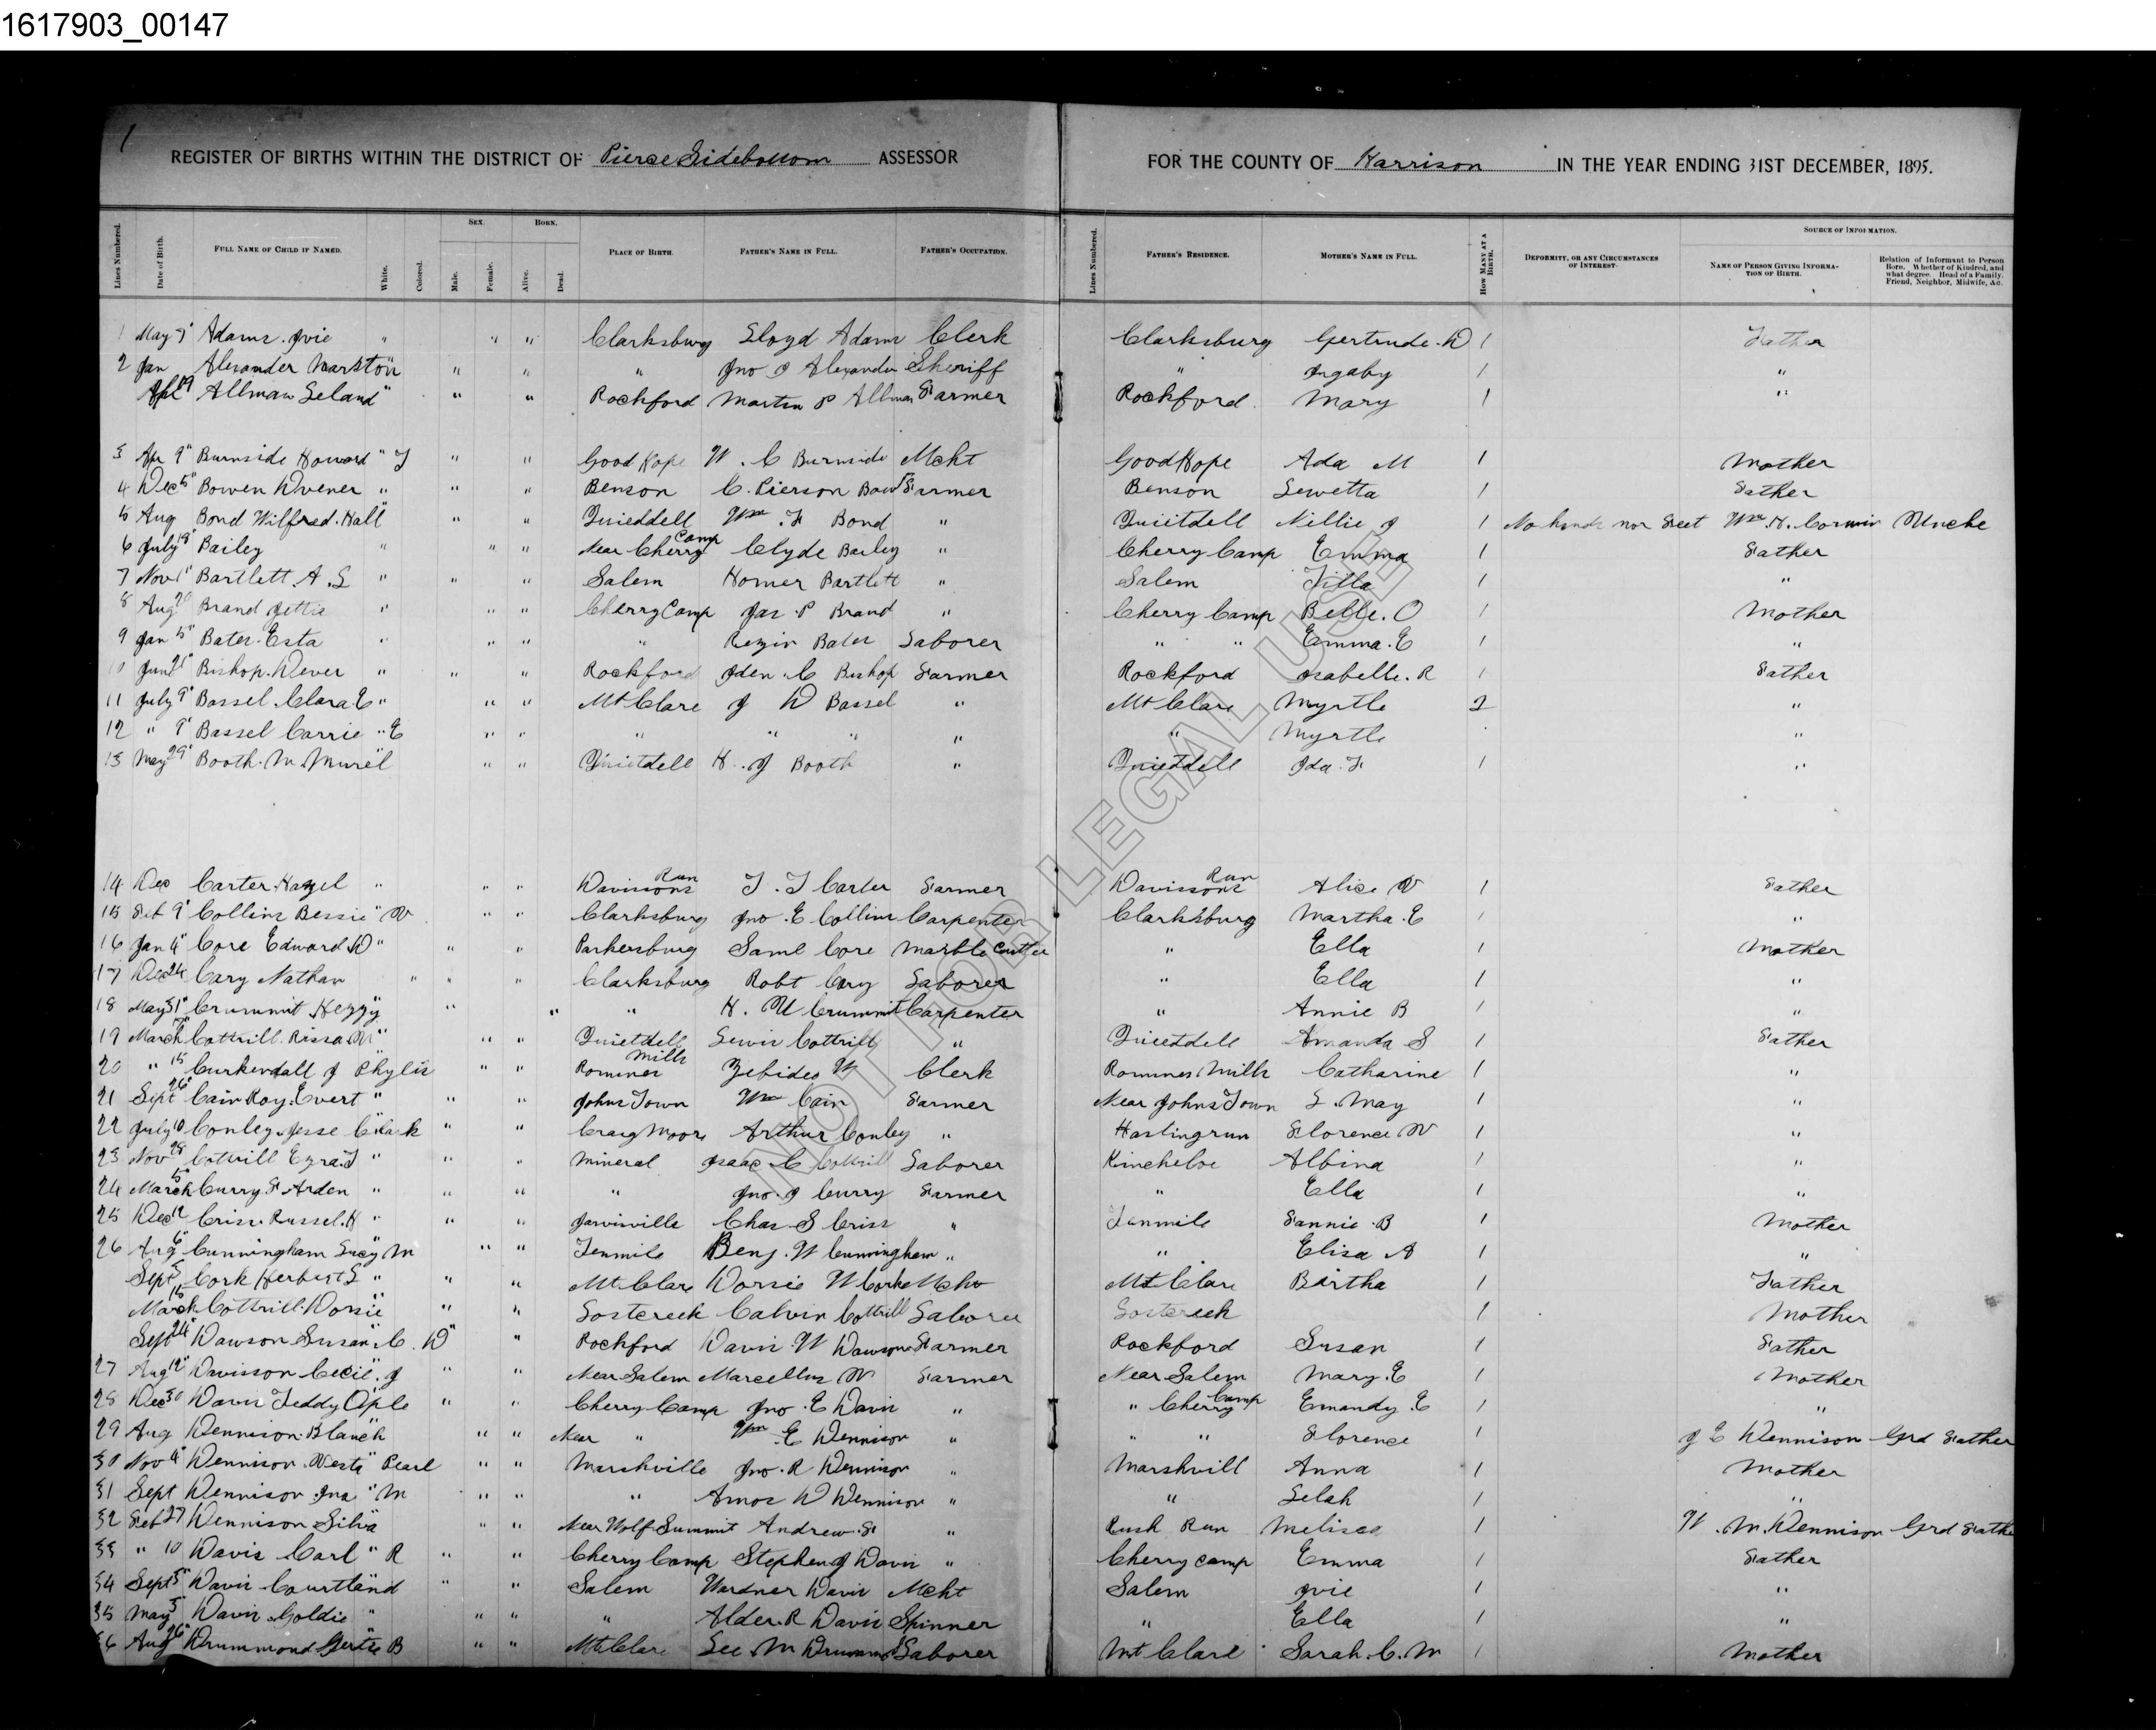 1617903_00147
1
REGISTER OF BIRTHS WITHIN THE DISTRICT OF Pierce Sidebottom ASSESSOR FOR THE COUNTY OF Harrison IN THE YEAR ENDING 31ST DECEMBER, 1895.
Lines Numbered. Date of Birth. FULL NAME OF CHILD IF NAMED. White. Colored. SEX. Male. Female. BORN. Alive. Dead. PLACE OF BIRTH. FATHER'S NAME IN FULL. FATHER'S OCCUPATION. Lines Numbered. FATHER'S RESIDENCE. MOTHER'S NAME IN FULL. HOW MANY AT A BIRTH. DEFORMITY, OR ANY CIRCUMSTANCES OF INTEREST. SOURCE OF INFORMATION. NAME OF PERSON GIVING INFORMATION OF BIRTH. Relation of Informant to Person Born. Whether of Kindred, and what degree. Head of a Family, Friend, Neighbor, Midwife, &c.
1 May Adams Ivie " " " Clarksburg Lloyd Adams Clerk Clarksburg Gertrude. D 1 Father
2 Jan Alexander Marston " " " " Jno J Alexander Sheriff " Ingaby 1 "
Apl 19 Allman Leland " " " Rockford Martin P Allman Farmer Rockford Mary 1 "
3 Apr 9" Burnside Howard " T " " Good Hope W. C Burnside Mcht Good Hope Ada M 1 Mother
4 Dec 5" Bowen Dvener " " " Benson C. Pierson Bow Farmer Benson Lewetta 1 Father
5 Aug Bond Wilfred. Hall " " " Quietdell Wm. F Bond " Quietdell Nellie J 1 No hands nor Feet Wm. H. Corwin Uncle
6 July 18" Bailey " " " Near Cherry Camp Clyde Bailey " Cherry Camp Emma 1 Father
7 Nov 1" Bartlett. A. L " " " Salem Homer Bartlett " Salem Tilla 1 "
8 Aug 20 Brand Jettie " " " Cherry Camp Jas. P Brand " Cherry Camp Belle. O 1 Mother
9 Jan 15" Bates. Esta " " " " Rezin Bates Laborer " " Emma. E 1 "
10 June 21" Bishop. Dever " " " Rockford Iden. C Bishop Farmer Rockford Isabelle. R 1 Father
11 July 9" Bassel. Clara. E " " " Mt Clare J D Bassel " Mt Clare Myrtle 2 "
12 " 9" Bassel Carrie " E " " " " " " Myrtle "
13 May 29" Booth. M. Murel " " " Quietdell H. J Booth " Quietdell Ida. F 1 "
14 Dec Carter. Hazel " " " Davissons Run T. J Carter Farmer Davissons Run Alice V 1 Father
15 Feb 9" Collins Bessie " V " " Clarksburg Jno. E Collins Carpenter Clarksburg Martha. E 1 "
16 Jan 4" Core Edward. D " " " Parkersburg Saml Core Marble Cutter " Ella 1 Mother
17 Dec 24 Cary Nathan " " " Clarksburg Robt Cary Laborer " Ella 1 "
18 May 31" Crummit Hezzy " " " " H. U Crummit Carpenter " Annie B 1 "
19 March Cottrill. Rissa. M " " " Quietdell Lewis Cottrill " Quietdell Amanda S 1 Father
20 " 15 Curkendall J Phylis " " Romines Mills Zebidee W Clerk Romines Mills Catharine 1 "
21 Sept 26" Cain Roy. Evert " " " Johns Town Wm Cain Farmer Near Johns Town L. May 1 "
22 July 10 Conley. Jesse Clark " " Craigmoore Arthur Conley " Hastingrun Florence V 1 "
23 Nov 28 Cottrill Ezra. T " " " Mineral Isaac. C Cottrill Laborer Kincheloe Albina 1 "
24 March 15 Curry. F Arden " " " " Jno. J Curry Farmer " Ella 1 "
25 Dec 12 Criss. Russel. H " " " Jarvisville Chas. S Criss " Tenmile Fannie. B 1 Mother
26 Aug 6" Cunningham Lucy M " " Tenmile Benj. W Cunningham " " Elisa A 1 "
Sept 5 Cork Herbert L " " " Mt. Clare Dorsie W Corke Mcht Mt Clare Bertha 1 Father
March 15 Cottrill. Dorsie " " " Lostcreek Calvin Cottrill Laborer Lostcreek 1 Mother
Sept 24" Dawson Susan. C. D " " Rockford Davis. W Dawson Farmer Rockford Susan 1 Father
27 Aug 12" Davisson Cecil. J " " Near Salem Marcellus W Farmer Near Salem Mary. E 1 Mother
28 Dec 30 Davis Teddy Ople " " Cherry Camp Jno. E Davis " " Cherry Camp Emandy. E 1 "
29 Aug Dennison. Blanch " " Near " Wm. E Dennison " " " Florence 1 J E Dennison Grd Father
30 Nov 4" Dennison. Vesta " Pearl " " Marshville Jno. R Dennison " Marshvill Anna 1 Mother
31 Sept Dennison. Ina " M " " " Amos D Dennison " " Selah 1 "
32 Feb 27 Dennison Silva " " " Near Wolf Summit Andrew. F " Rush Run Melissa 1 W. M. Dennison Grd Fathe
33 " 10 Davis Carl " R " " Cherry Camp Stephen J Davis " Cherry Camp Emma 1 Father
34 Sept 5" Davis Courtland " " Salem Wardner Davis Mcht Salem Ivie 1 "
35 May 3" Davis Goldie " " " " Alder. R Davis Spinner " Ella 1 "
36 Aug 26" Drummond Gertie B " " Mt Clare Lee. M Drummond Laborer Mt Clare Sarah. C. M 1 Mother
NOT FOR LEGAL USE